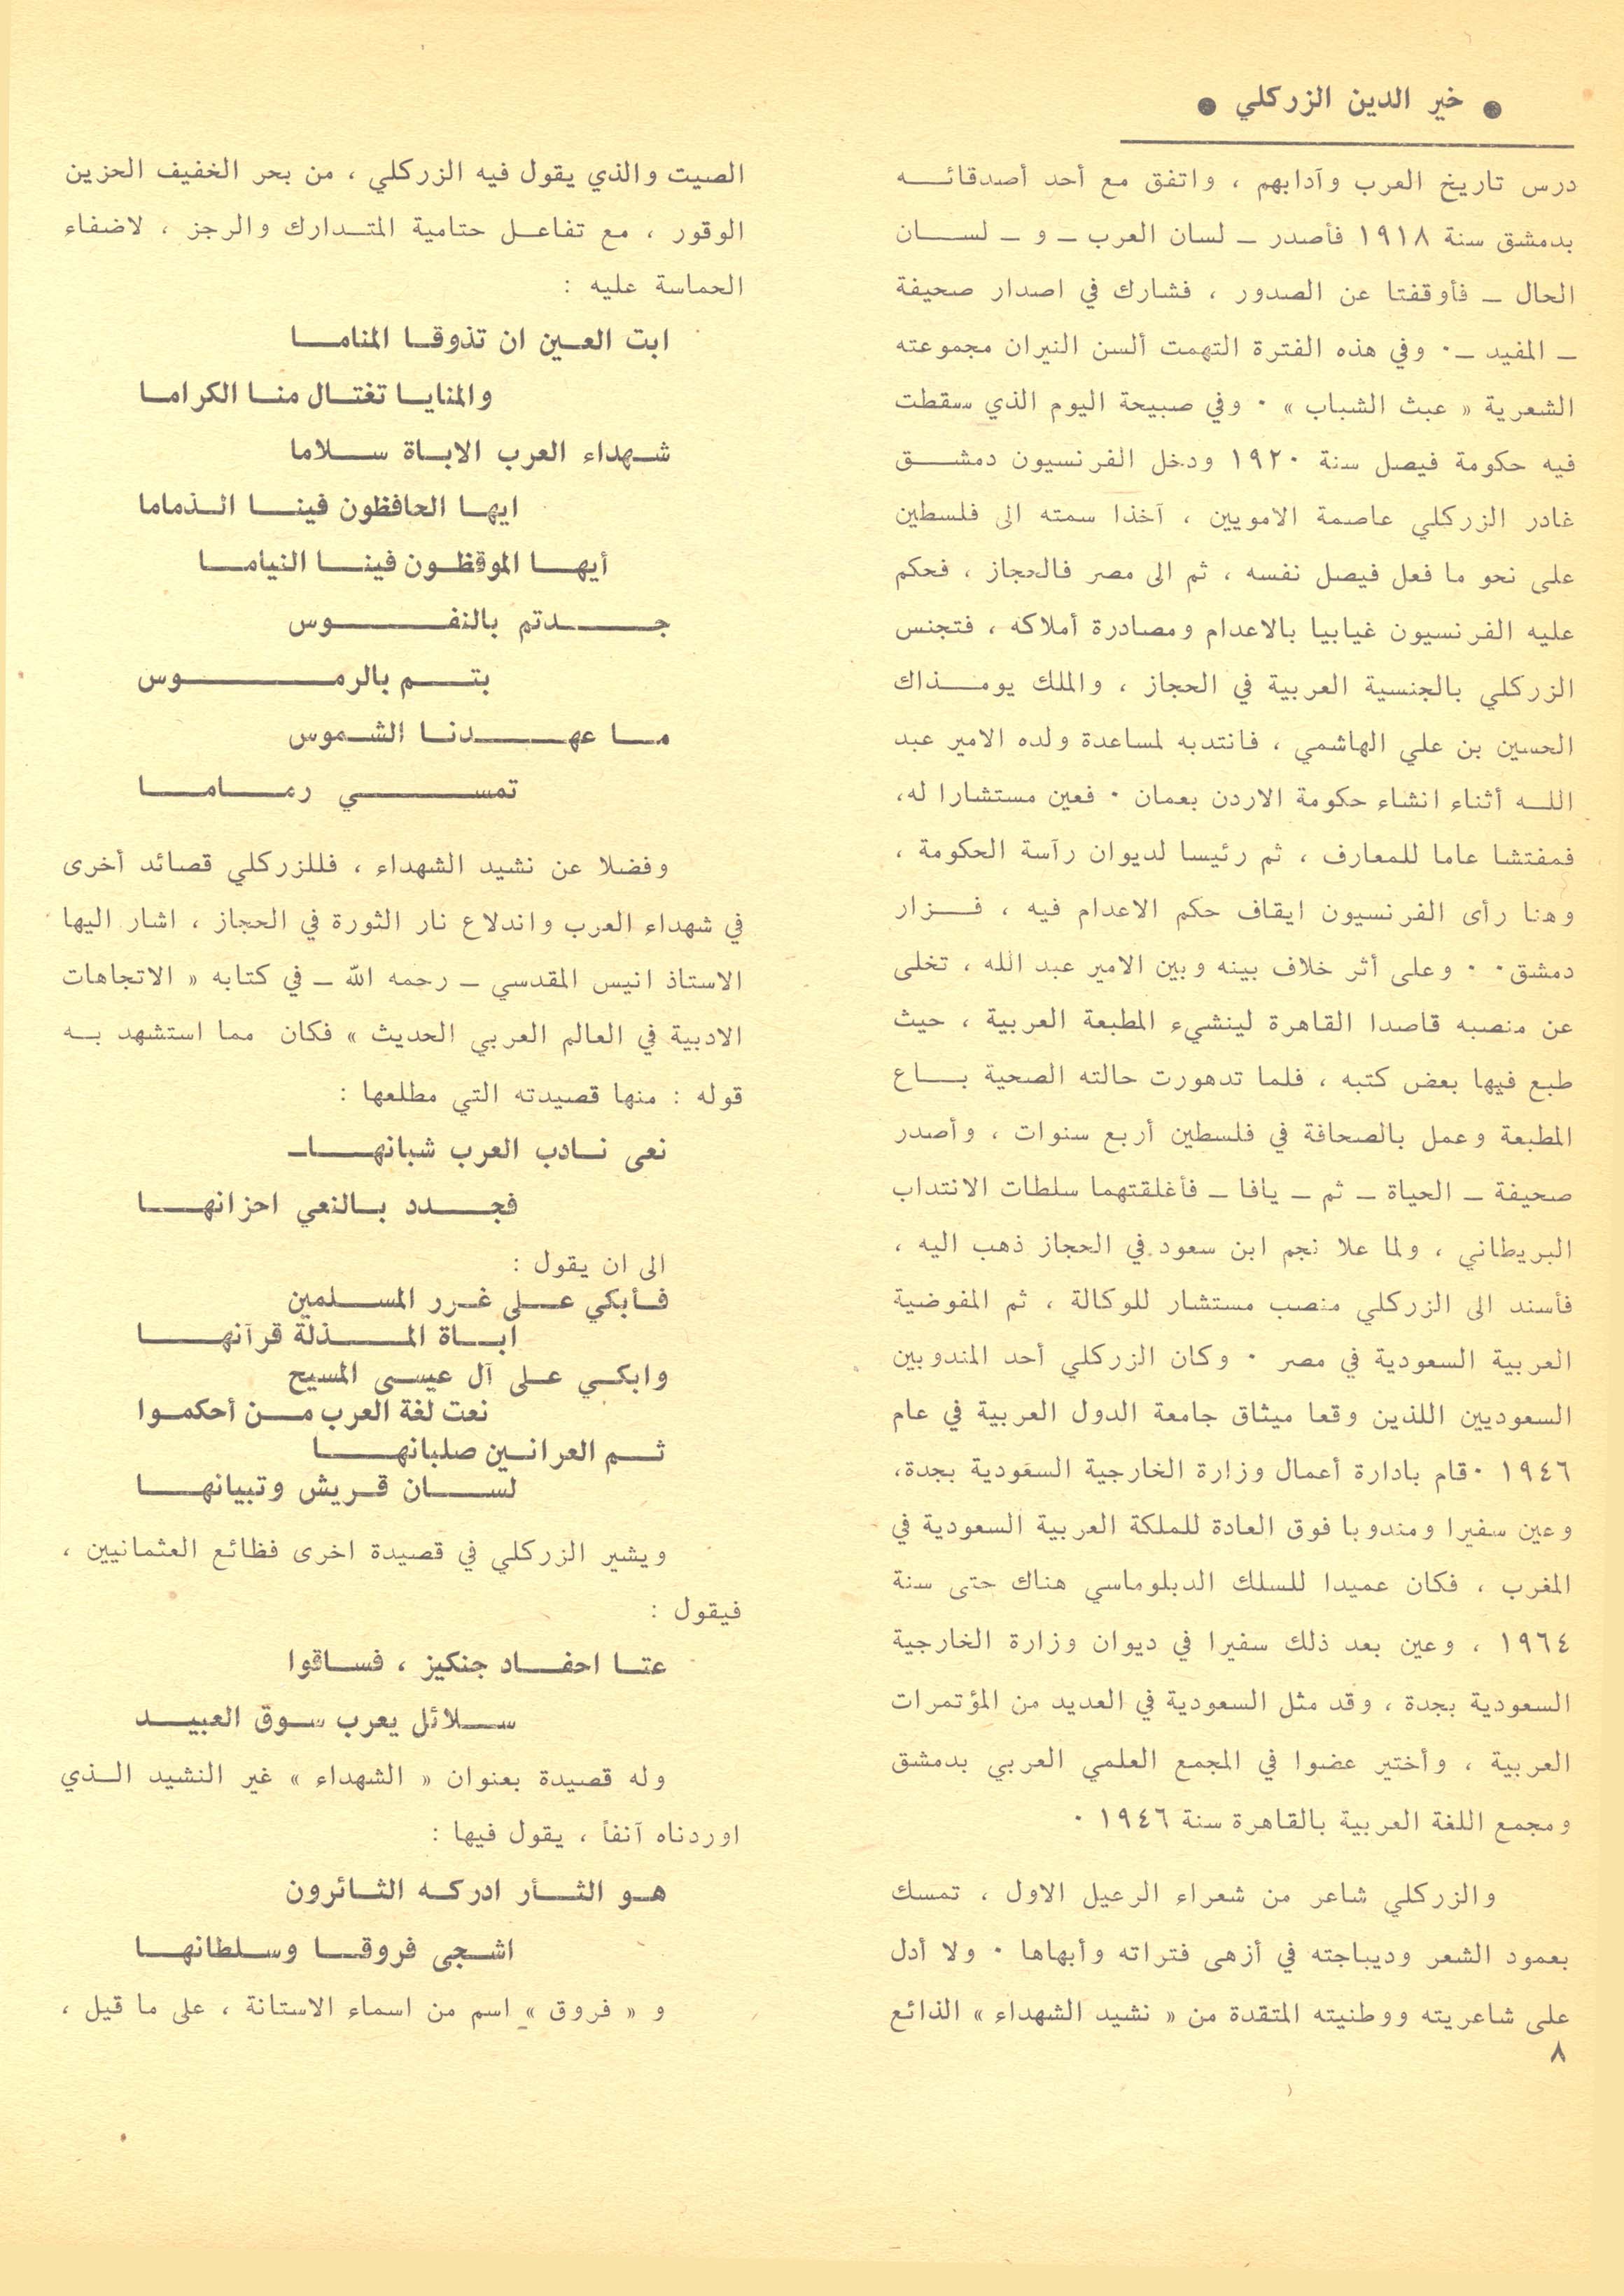 ● خير الدين الزركلي ●
درس تاريخ العرب وآدابهم ، واتفق مع أحد أصدقائه
بدمشق سنة ١٩١٨ فأصدر – لسان العرب – و – لسان
الحال – فأوقفتا عن الصدور ، فشارك في اصدار صحيفة
– المفيد – . وفي هذه الفترة التهمت ألسن النيران مجموعته
الشعرية « عبث الشباب » . وفي صبيحة اليوم الذي سقطت
فيه حكومة فيصل سنة ١٩٢٠ ودخل الفرنسيون دمشق
غادر الزركلي عاصمة الامويين ، آخذا سمته الى فلسطين
على نحو ما فعل فيصل نفسه ، ثم الى مصر فالحجاز ، فحكم
عليه الفرنسيون غيابيا بالاعدام ومصادرة أملاكه ، فتجنس
الزركلي بالجنسية العربية في الحجاز ، والملك يومذاك
الحسين بن علي الهاشمي ، فانتدبه لمساعدة ولده الامير عبد
الله أثناء انشاء حكومة الاردن بعمان . فعين مستشارا له،
فمفتشا عاما للمعارف ، ثم رئيسا لديوان رآسة الحكومة ،
وهنا رأى الفرنسيون ايقاف حكم الاعدام فيه ، فزار
دمشق . . وعلى أثر خلاف بينه وبين الامير عبد الله ، تخلى
عن منصبه قاصدا القاهرة لينشيء المطبعة العربية ، حيث
طبع فيها بعض كتبه ، فلما تدهورت حالته الصحية باع
المطبعة وعمل بالصحافة في فلسطين أربع سنوات ، وأصدر
صحيفة – الحياة – ثم – يافا – فأغلقتهما سلطات الانتداب
البريطاني ، ولما علا نجم ابن سعود في الحجاز ذهب اليه ،
فأسند الى الزركلي منصب مستشار للوكالة ، ثم المفوضية
العربية السعودية في مصر . وكان الزركلي أحد المندوبين
السعوديين اللذين وقعا ميثاق جامعة الدول العربية في عام
١٩٤٦ . قام بادارة أعمال وزارة الخارجية السعودية بجدة،
وعين سفيرا ومندوبا فوق العادة للملكة العربية السعودية في
المغرب ، فكان عميدا للسلك الدبلوماسي هناك حتى سنة
١٩٦٤ ، وعين بعد ذلك سفيرا في ديوان وزارة الخارجية
السعودية بجدة ، وقد مثل السعودية في العديد من المؤتمرات
العربية ، وأختير عضوا في المجمع العلمي العربي بدمشق
ومجمع اللغة العربية بالقاهرة سنة ١٩٤٦ .
والزركلي شاعر من شعراء الرعيل الاول ، تمسك
بعمود الشعر وديباجته في أزهى فتراته وأبهاها . ولا أدل
على شاعريته ووطنيته المتقدة من « نشيد الشهداء » الذائع
٨
الصيت والذي يقول فيه الزركلي ، من بحر الخفيف الحزين
الوقور ، مع تفاعل حتامية المتدارك والرجز ، لاضفاء
الحماسة عليه :
ابت العين ان تذوقا المناما
والمنايا تغتال منا الكراما
شهداء العرب الاباة سلاما
ايها الحافظون فينا الذماما
أيها الموقظون فينا النياما
جدتم بالنفوس
بتم بالرموس
ما عهدنا الشموس
تمسي رماما
وفضلا عن نشيد الشهداء ، فللزركلي قصائد أخرى
في شهداء العرب واندلاع نار الثورة في الحجاز ، اشار اليها
الاستاذ انيس المقدسي – رحمه الله – في كتابه « الاتجاهات
الادبية في العالم العربي الحديث » فكان مما استشهد به
قوله : منها قصيدته التي مطلعها :
نعى نادب العرب شبانها
فجدد بالنعي احزانها
الى ان يقول :
فأبكي على غرر المسلمين
اباة المذلة قرآنها
وابكي على آل عيسى المسيح
نعت لغة العرب من أحكموا
ثم العرانين صلبانها
لسان قريش وتبيانها
ويشير الزركلي في قصيدة اخرى فظائع العثمانيين ،
فيقول :
عتا احفاد جنكيز ، فساقوا
سلائل يعرب سوق العبيد
وله قصيدة بعنوان « الشهداء » غير النشيد الذي
اوردناه آنفاً ، يقول فيها :
هو الثأر ادركه الثائرون
اشجى فروقا وسلطانها
و « فروق » اسم من اسماء الاستانة ، على ما قيل ،